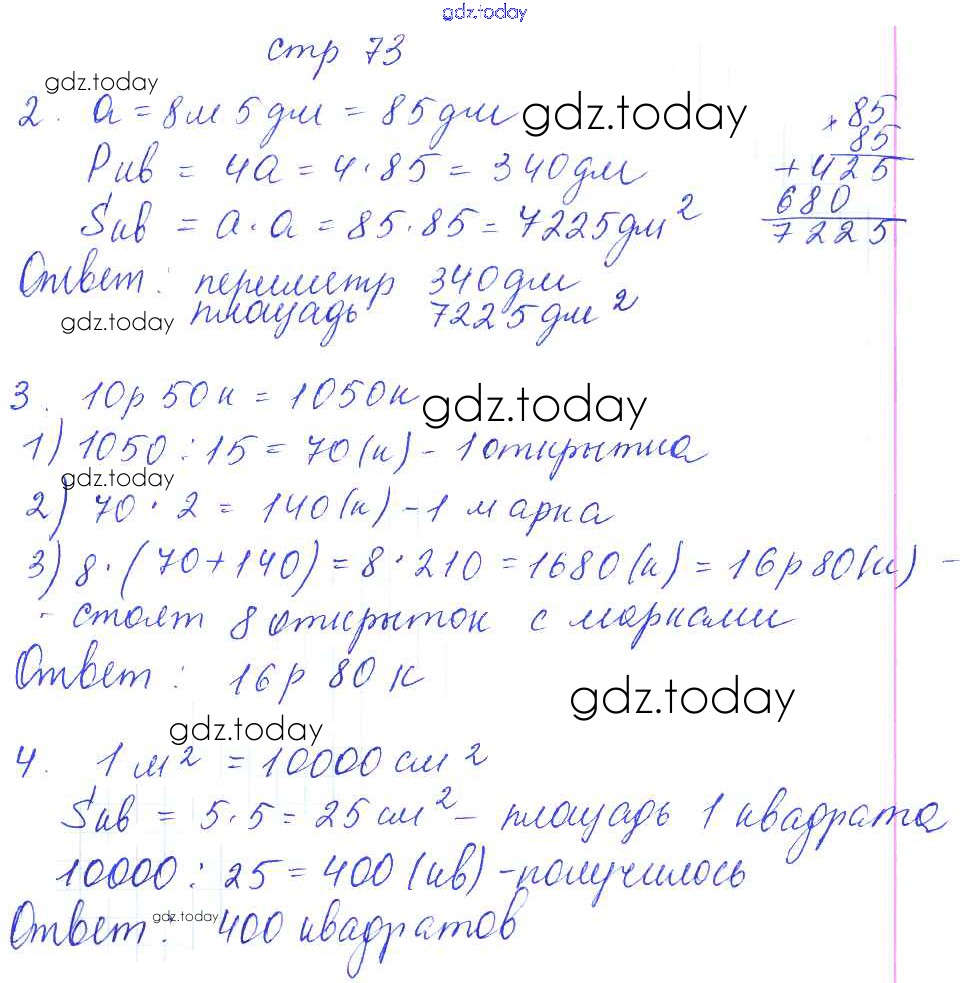 gdz.today
стр 73
gdz.today
2. a = 8м 5дм = 85дм gdz.today
Pкв = 4a = 4·85 = 340дм
Sкв = a·a = 85·85 = 7225дм²
× 85
85
+ 425
680
7225
Ответ: периметр 340дм
gdz.today площадь 7225дм²
3. 10р 50к = 1050к gdz.today
1) 1050 : 15 = 70(к) - 1 открытка
gdz.today
2) 70 · 2 = 140(к) - 1 марка
3) 8·(70+140) = 8·210 = 1680(к) = 16р 80(к) -
- стоят 8 открыток с марками
Ответ: 16р 80к
gdz.today
gdz.today
4. 1м² = 10000см²
Sкв = 5·5 = 25см² - площадь 1 квадрата
10000 : 25 = 400(кв) - получилось
Ответ: gdz.today 400 квадратов